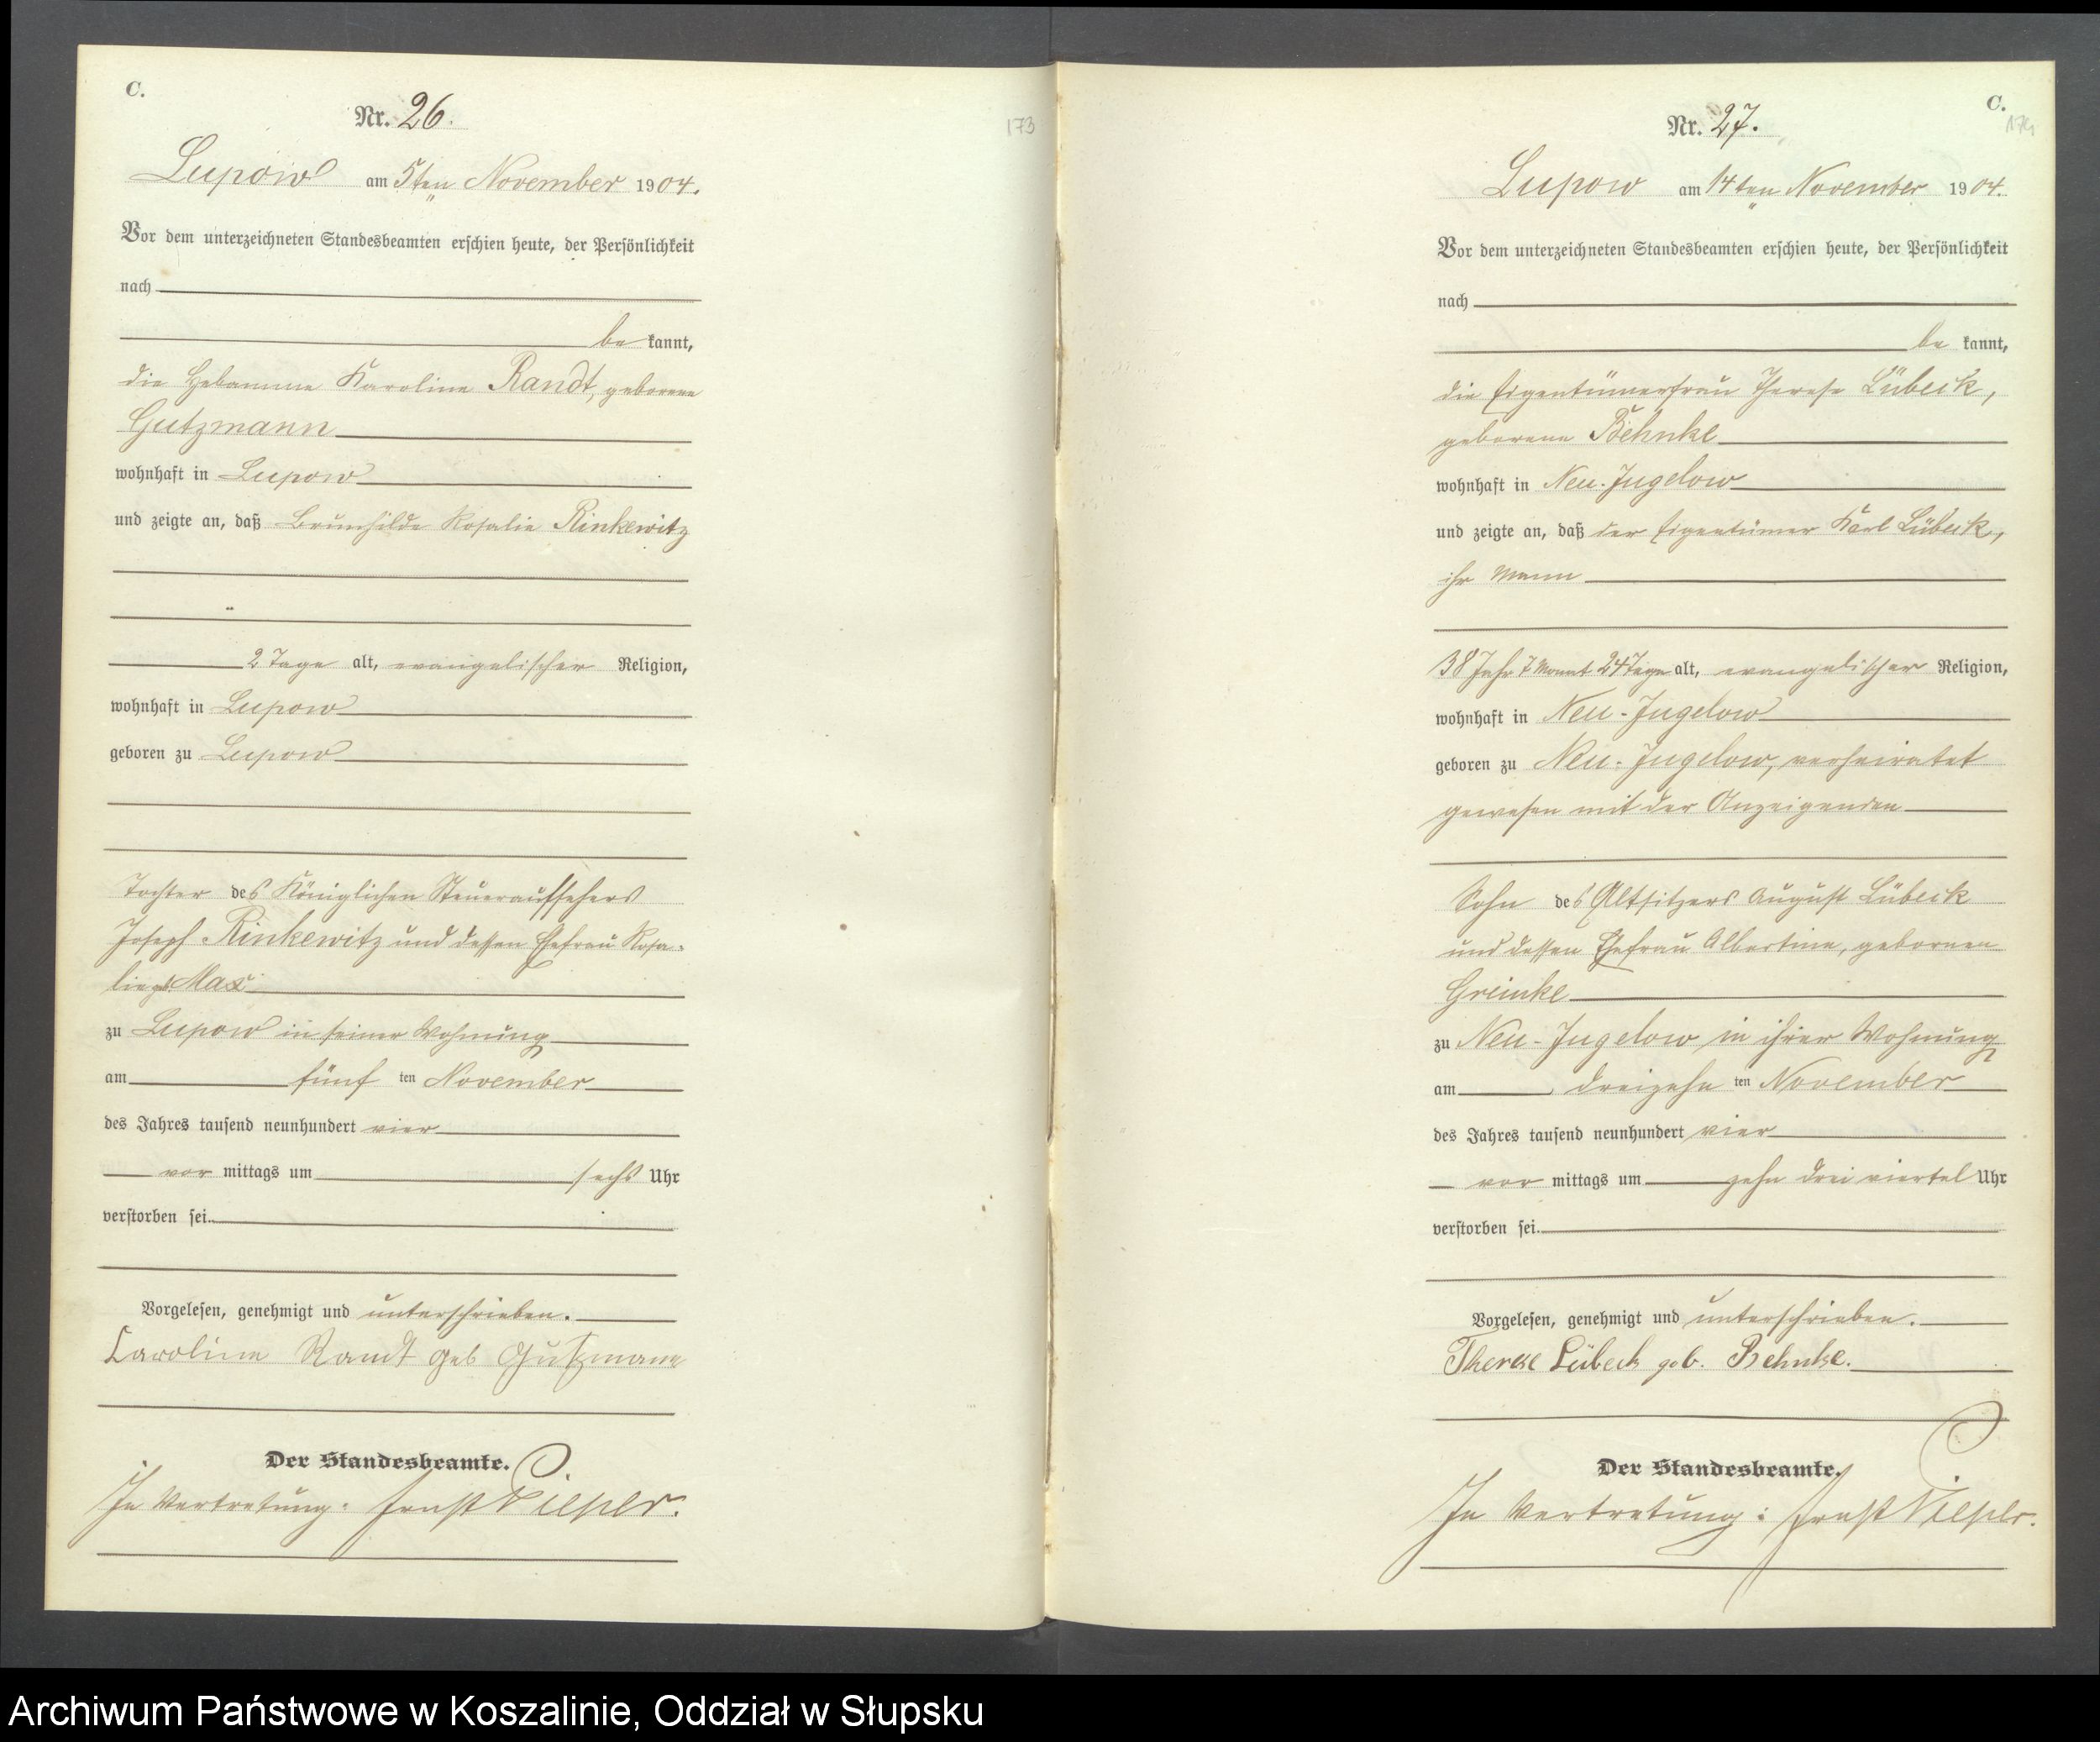 C.
Nr. 26.
173
Lupow am 5ten November 1904.
Vor dem unterzeichneten Standesbeamten erschien heute, der Persönlichkeit
nach
be kannt,
die Hebamme Karoline Randt, geborene
Gutzmann
wohnhaft in Lupow
und zeigte an, daß Brunhilde Rosalie Rinkewitz
2 Tage alt, evangelischer Religion,
wohnhaft in Lupow
geboren zu Lupow
Tochter des Königlichen Steueraufsehers
Joseph Rinkewitz und dessen Ehefrau Rosa-
lie gb. Max
zu Lupow in seiner Wohnung
am fünf ten November
des Jahres tausend neunhundert vier
vor mittags um sechs Uhr
verstorben sei.
Vorgelesen, genehmigt und unterschrieben.
Caroline Randt geb Gutzmann
Der Standesbeamte.
In Vertretung: Ernst Pieper.
C.
174
Nr. 27.
Lupow am 14ten November 1904.
Vor dem unterzeichneten Standesbeamten erschien heute, der Persönlichkeit
nach
be kannt,
die Eigentümerfrau Therese Lübeck,
geborene Behnke
wohnhaft in Neu-Jugelow
und zeigte an, daß der Eigentümer Karl Lübeck,
ihr Mann
38 Jahr 7 Monat 24 Tage alt, evangelischer Religion,
wohnhaft in Neu-Jugelow
geboren zu Neu-Jugelow, verheiratet
gewesen mit der Anzeigenden
Sohn des Altsitzers August Lübeck
und dessen Ehefrau Albertine, gebornen
Greinke
zu Neu-Jugelow in ihrer Wohnung
am dreizehn ten November
des Jahres tausend neunhundert vier
vor mittags um zehn drei viertel Uhr
verstorben sei.
Vorgelesen, genehmigt und unterschrieben.
Therese Lübeck geb. Behnke.
Der Standesbeamte.
In Vertretung: Ernst Pieper.
Archiwum Państwowe w Koszalinie, Oddział w Słupsku